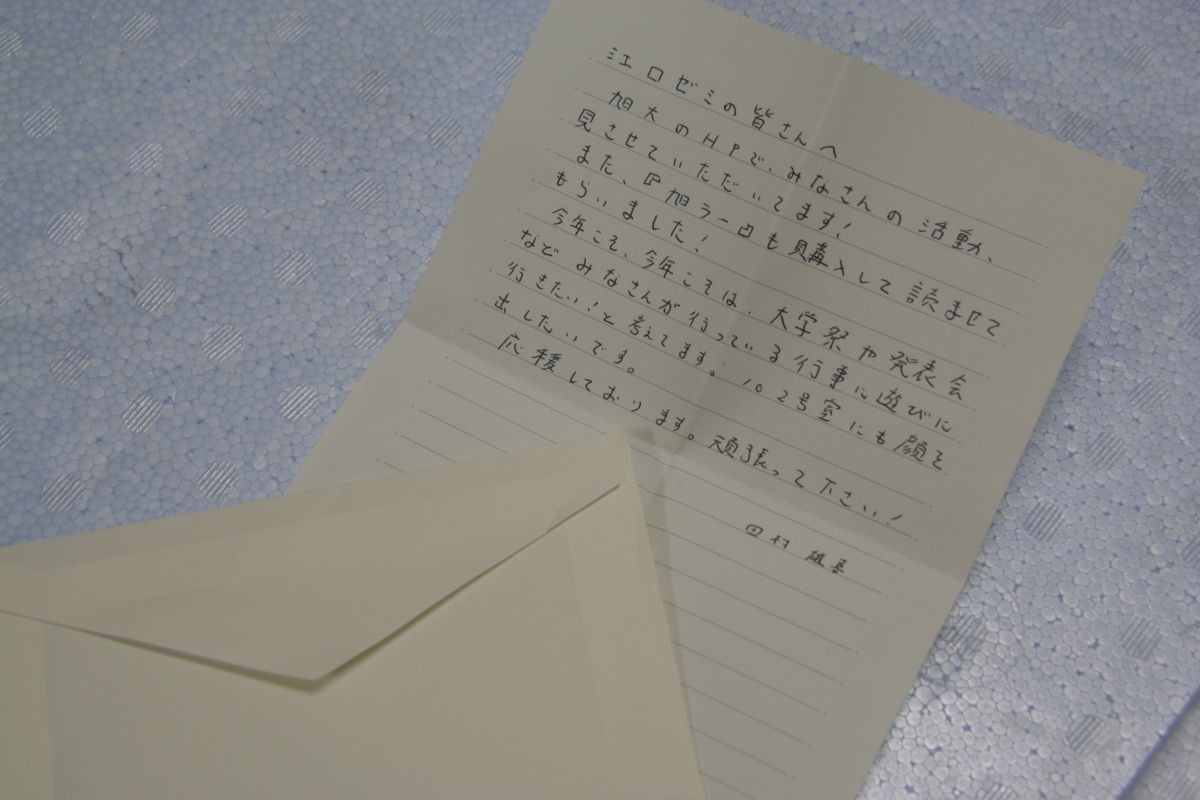 江口ゼミの皆さんへ
旭大のHPで、みなさんの活動、
見させていただいてます！
また、旭ラー も購入して読ませて
もらいました！
今年こそ、今年こそは、大学祭や発表会
など みなさんが行っている行事に遊びに
行きたい！と考えてます。102号室にも顔を
出したいです。
応援しております。頑張って下さい！
田村